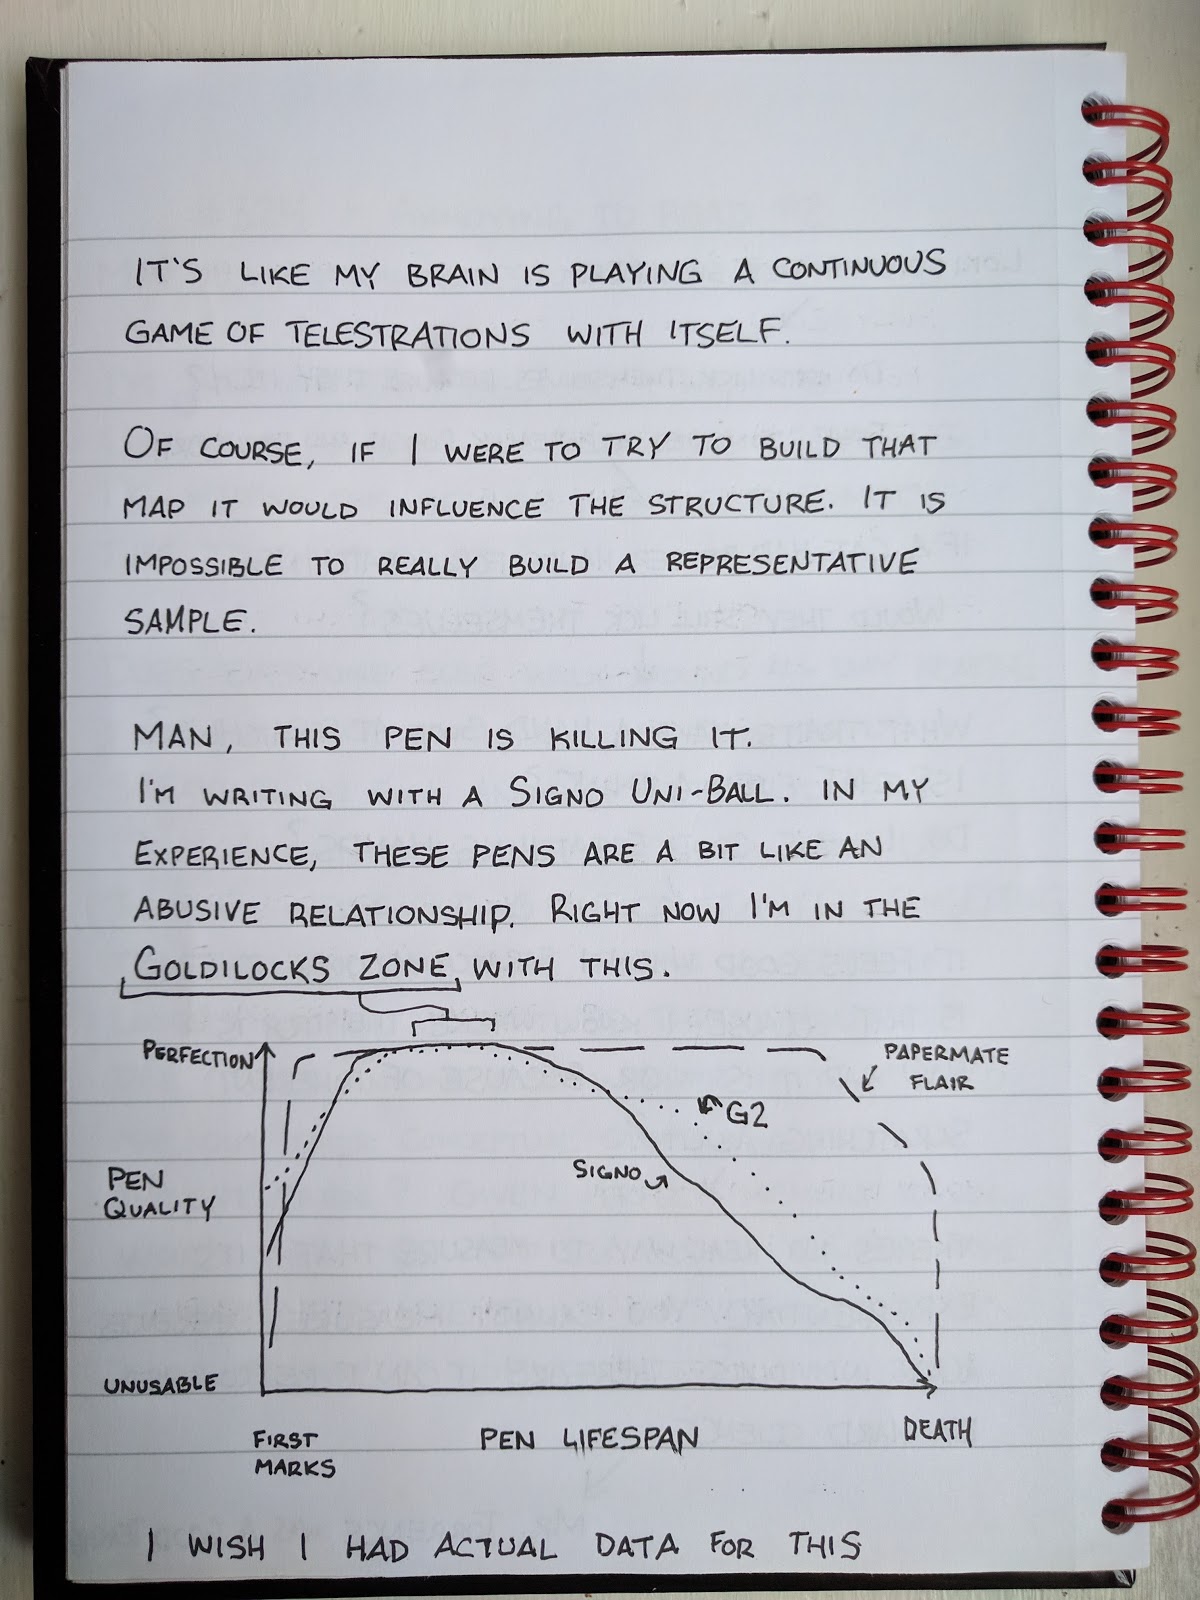 IT'S LIKE MY BRAIN IS PLAYING A CONTINUOUS
GAME OF TELESTRATIONS WITH ITSELF.
OF COURSE, IF I WERE TO TRY TO BUILD THAT
MAP IT WOULD INFLUENCE THE STRUCTURE. IT IS
IMPOSSIBLE TO REALLY BUILD A REPRESENTATIVE
SAMPLE.
MAN, THIS PEN IS KILLING IT.
I'M WRITING WITH A SIGNO UNI-BALL. IN MY
EXPERIENCE, THESE PENS ARE A BIT LIKE AN
ABUSIVE RELATIONSHIP. RIGHT NOW I'M IN THE
GOLDILOCKS ZONE, WITH THIS.
PERFECTION
PAPERMATE
FLAIR
G2
SIGNO
PEN
QUALITY
UNUSABLE
FIRST
MARKS
PEN LIFESPAN
DEATH
I WISH I HAD ACTUAL DATA FOR THIS